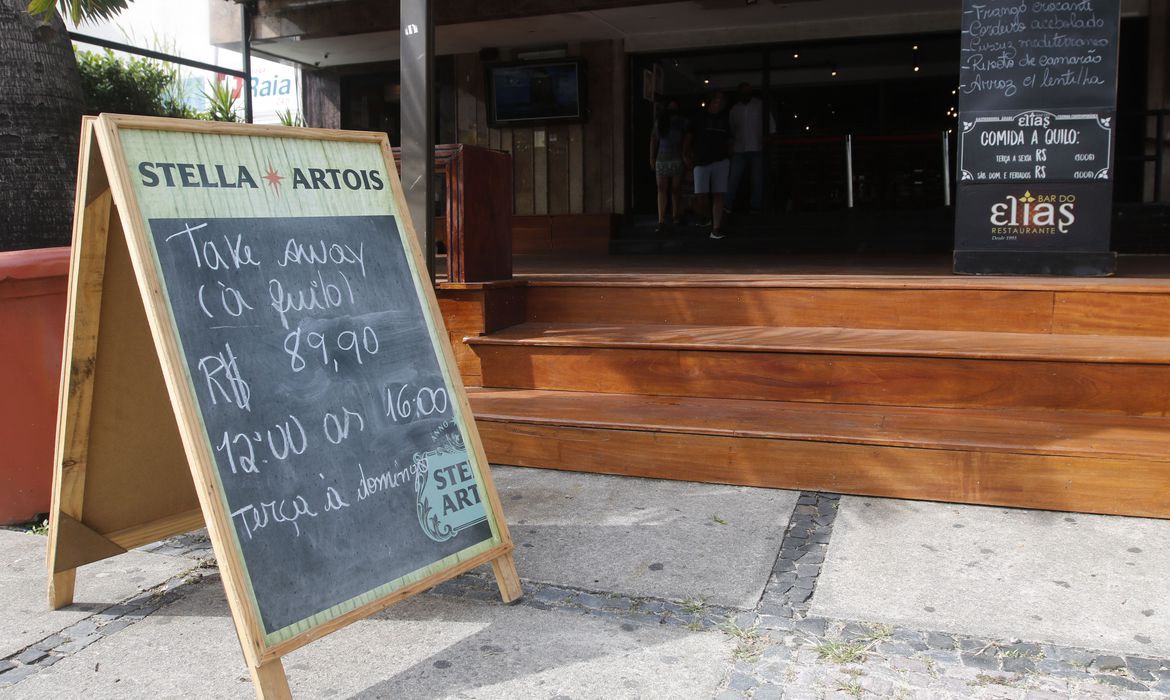 STELLA ARTOIS
Take away
(à quilo)
R$ 89,90
12:00 as 16:00
Terça à domingo
ANNO
STE
ART
Raia
Frango crocante
Cordeiro acebolado
Cuscuz mediterraneo
Risoto de camarão
Arroz c/ lentilha
elias
COMIDA A QUILO:
TERÇA A SEXTA R$ (100G)
SÁB. DOM. E FERIADOS R$ (100G)
BAR DO
eliaş
RESTAURANTE
Desde 1993